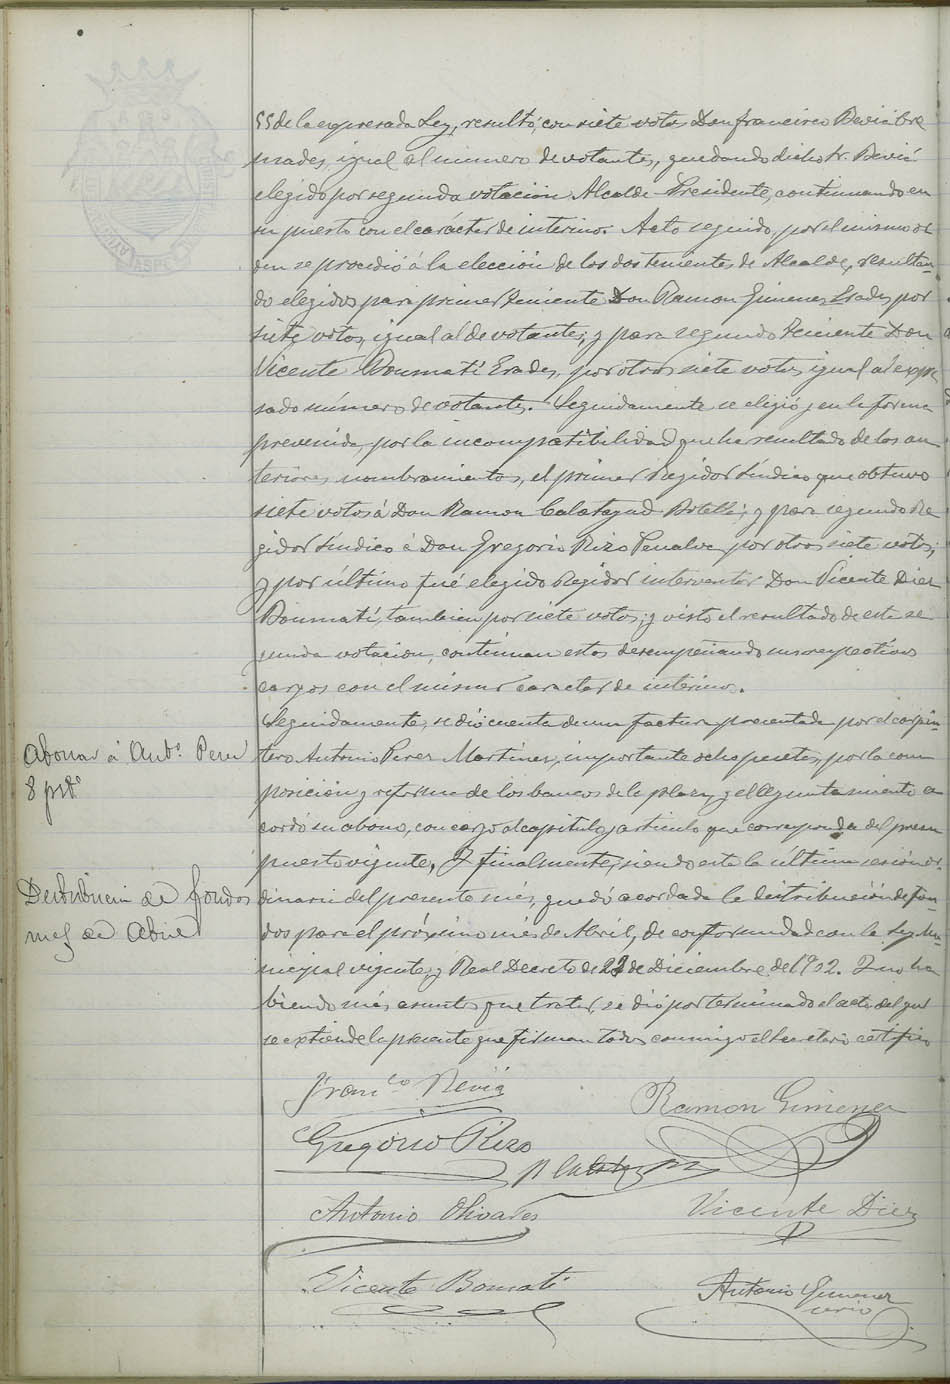 55 de la expresada Ley, resultó, con siete votos Don Francisco Beviá Cre
mades, igual al número de votantes, quedando dicho Sr. Beviá
elegido por segunda votacion Alcalde-Presidente, continuando en
su puesto con el carácter de interino. Acto seguido, por el mismo or
den se procedió á la elección de los dos tenientes de Alcalde, resultan-
do elegidos para primer teniente Don Ramon Gimenez Prades por
siete votos, igual al de votantes; y para segundo teniente Don
Vicente Boumatí Erades, por otros siete votos, igual al expre
sado número de votantes. Seguidamente se eligió, en la forma
prevenida, por la incompatibilidad que ha resultado de los an
teriores nombramientos, el primer Regidor Síndico que obtuvo
siete votos á Don Ramon Calatayud Botella; y para segundo Re
gidor Síndico á Don Gregorio Rizo Penalva por otros siete votos;
y por último fué elegido Regidor interventor Don Vicente Diez
Boumatí, tambien por siete votos; y visto el resultado de esta se
gunda votacion, continuan estos desempeñando sus respectivos
cargos con el mismo caracter de interinos.
Seguidamente, se dió cuenta de una factura presentada por el carpin-
Abonar á Antº Perez
tero Antonio Perez Martinez, importante ocho pesetas, por la com
8 ptsº
posición y reforma de los bancos de la plaza, y el Ayuntamiento a
cordó su abono, con cargo al capitulo y articulo que corresponda del presu
puesto vigente. Y finalmente, siendo esta la última sesión or-
Distribucin de fondos
dinaria del presente més, quedó acordada la distribución de fon-
mes de Abril
dos para el próximo més de Abril, de conformidad con la Ley Mu-
nicipal vigente, y Real Decreto de 23 de Diciembre de 1902. Y no ha
biendo más asuntos que tratar, se dió por terminado el acto del que
se extiende la presente que firman todos conmigo el Secretario certifico
Francco Beviá
Ramon Gimenez
Gregorio Rizo
Antonio Olivares
Vicente Diez
Vicente Bomati
Antonio Gimenez
srio